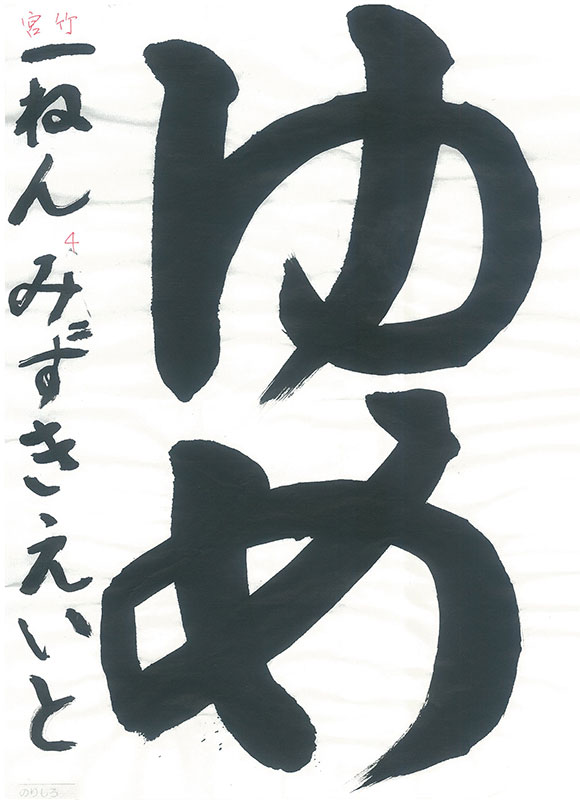 ゆめ
竹宮
一ねん みずきえいと
4
のりしろ